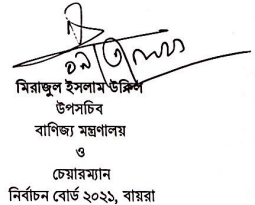 মিরাজুল ইসলাম উকিল
উপসচিব
বাণিজ্য মন্ত্রণালয়
ও
চেয়ারম্যান
নির্বাচন বোর্ড ২০২১, বায়রা